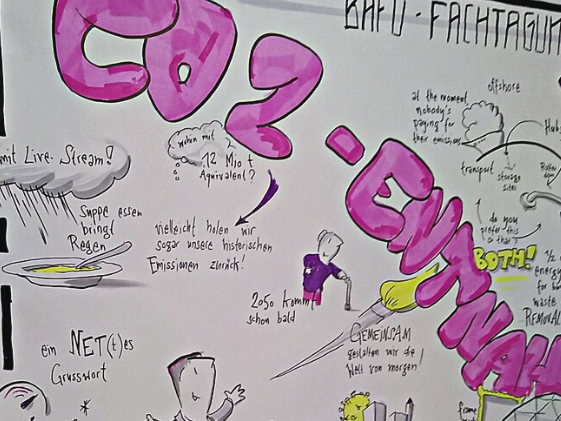 BAFU-FACHTAGUN
CO2-ENTNAH
mit Live-Stream!
Suppe essen
bringt
Regen
wohin mit
12 Mio t
Äquivalent?
vielleicht holen wir
sogar unsere historischen
Emissionen zurück!
2050 kommt
schon bald
ein NET(t)es
Grusswort
GEMEINSAM
gestalten wir die
Welt von morgen!
at the moment
nobody's
paying for
their emissions
offshore
Hubs
transport
storage
sites
do you
prefer this
or that?
BOTH!
energy
for
waste
REMOVAL
frame